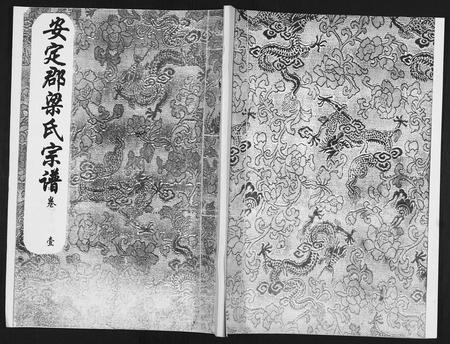 安定郡梁氏宗谱
卷 壹